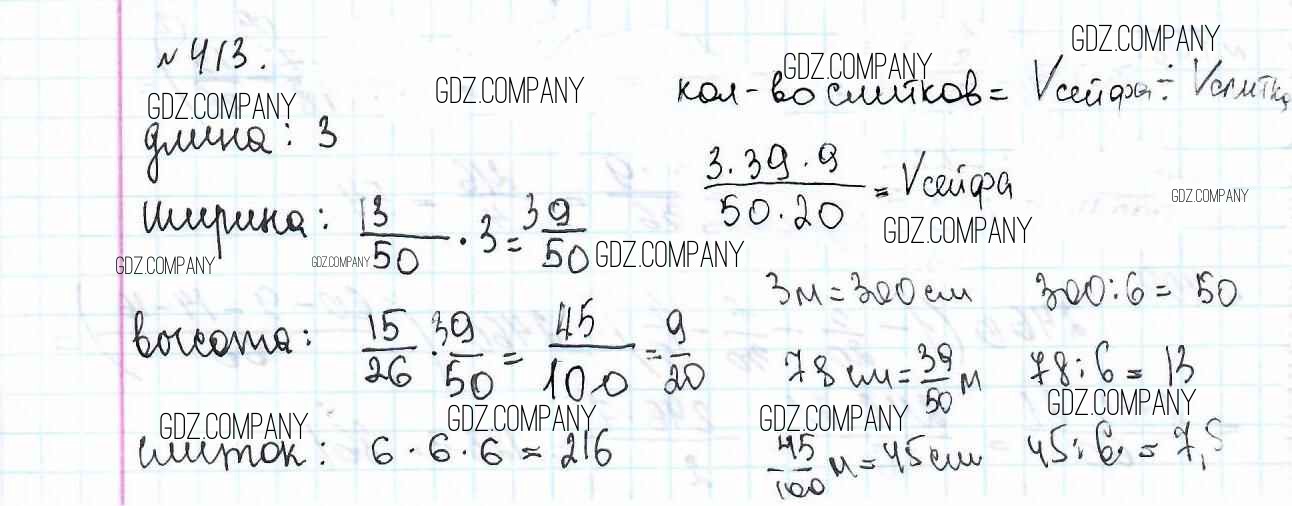 № 413.
GDZ.COMPANY
GDZ.COMPANY
GDZ.COMPANY
GDZ.COMPANY
кол-во слитков = Vсейфа ÷ Vслитка
длина: 3
3·39·9/50·20 = Vсейфа
GDZ.COMPANY
ширина: 13/50 · 3 = 39/50
GDZ.COMPANY
GDZ.COMPANY
GDZ.COMPANY
GDZ.COMPANY
3м = 300 см 300:6 = 50
высота: 15/26 · 39/50 = 45/100 = 9/20
78 см = 39/50 м 78:6 = 13
GDZ.COMPANY
GDZ.COMPANY
GDZ.COMPANY
GDZ.COMPANY
слиток: 6·6·6 = 216
45/100 м = 45 см 45:6 = 7,5